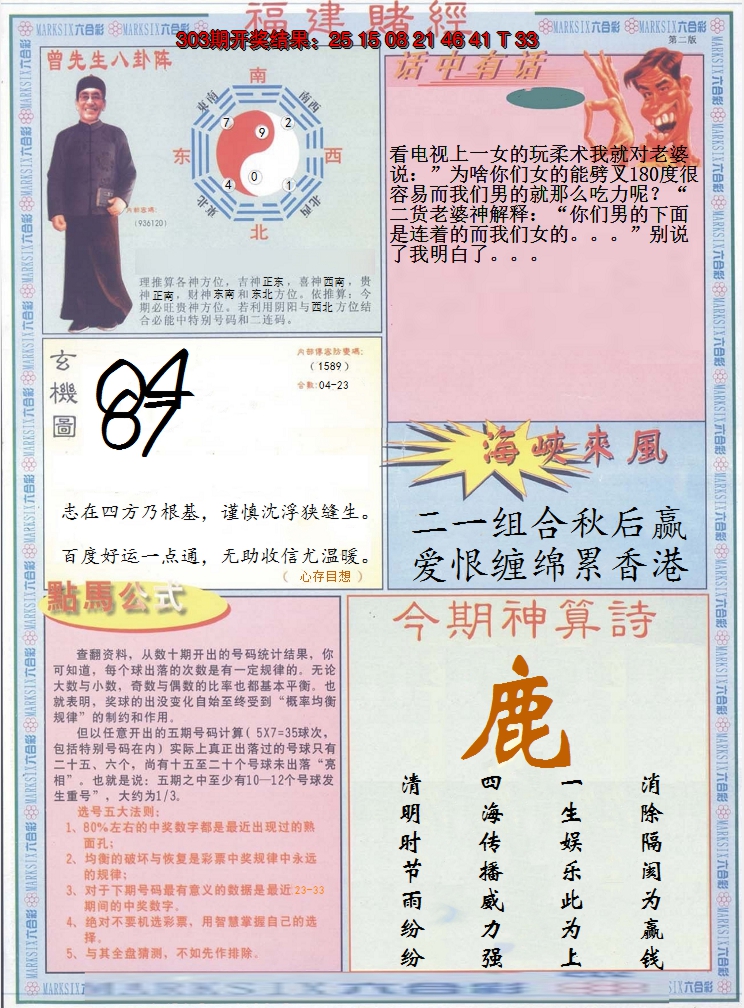 福建賭經
303期开奖结果：25 15 08 21 46 41 T 33
第二版
曾先生八卦阵
南
东南
南西
7
9
2
东
西
4
0
1
东北
北西
北
内部密碼:
(936120)
理推算各神方位，吉神正东，喜神西南，贵
神正南，财神东南和东北方位。依推算：今
期必旺贵神方位。若利用阴阳与西北方位结
合必能中特别号码和二连码。
话中有话
看电视上一女的玩柔术我就对老婆
说：”为啥你们女的能劈叉180度很
容易而我们男的就那么吃力呢？“
二货老婆神解释：“你们男的下面
是连着的而我们女的。。。”别说
了我明白了。。。
玄機圖
04
67
内部傳密防密碼:
(1589)
合数:04-23
志在四方乃根基，谨慎沈浮狭缝生。
百度好运一点通，无助收信尤温暖。
（ 心存目想 ）
海峽來風
二一组合秋后赢
爱恨缠绵累香港
點馬公式
查翻资料，从数十期开出的号码统计结果，你
可知道，每个球出落的次数是有一定规律的。无论
大数与小数，奇数与偶数的比率也都基本平衡。也
就表明，奖球的出没变化自始至终受到“概率均衡
规律”的制约和作用。
但以任意开出的五期号码计算( 5X7=35球次，
包括特别号码在内) 实际上真正出落过的号球只有
二十五、六个，尚有十五至二十个号球未出落“亮
相”。也就是说：五期之中至少有10—12个号球发
生重号”，大约为1/3。
选号五大法则：
1、80%左右的中奖数字都是最近出现过的熟
面孔；
2、均衡的破坏与恢复是彩票中奖规律中永远
的规律；
3、对于下期号码最有意义的数据是最近23-33
期间的中奖数字。
4、绝对不要机选彩票，用智慧掌握自己的选
择。
5、与其全盘猜测，不如先作排除。
今期神算詩
鹿
清明时节雨纷纷
四海传播威力强
一生娱乐此为上
消除隔阂为赢钱
MARKSIX六合彩